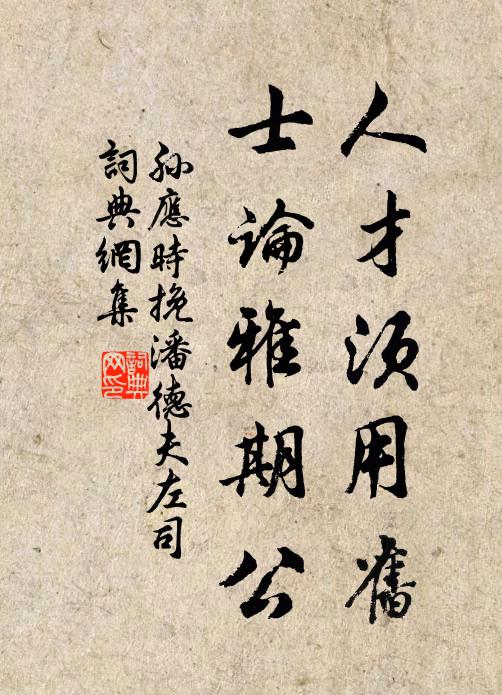 人才須用舊
士論雅期公
孫應時挽潘德夫左司
詞典網集
詞典网印